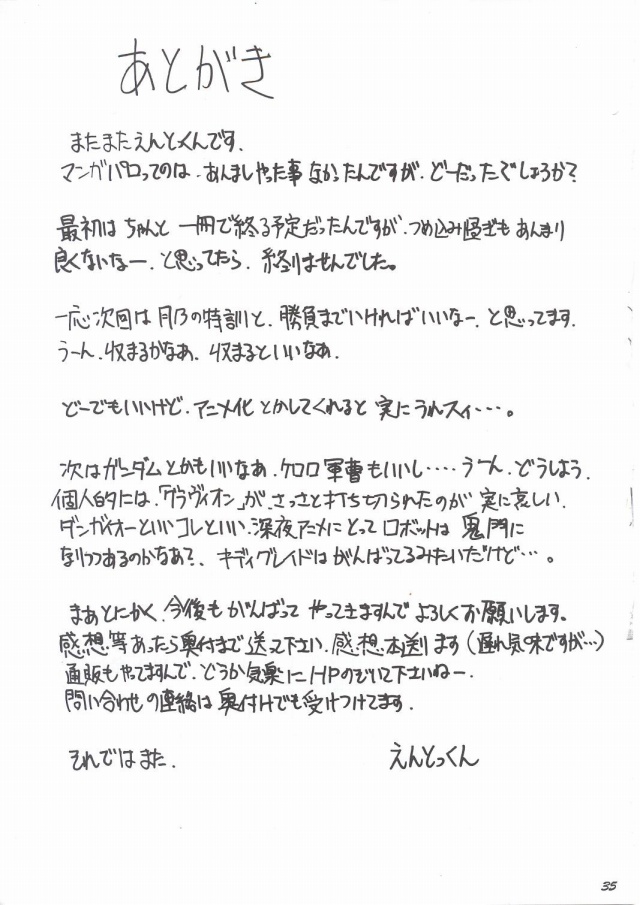 あとがき
またまたえんとくんです.
マンガパロってのは、あんましやった事なかったんですが、どーだったでしょうか？
最初はちゃんと一冊で終る予定だったんですが、つめ込み過ぎもあんまり
良くないなー、と思ってたら、終りませんでした。
一応次回は月乃の特訓と、勝負までいければいいなー、と思ってます.
うーん、収まるかなあ、収まるといいなあ.
どーでもいいけど、アニメ化とかしてくれると実にうれスィ・・・。
次はガンダムとかもいいなあ、ケロロ軍曹もいいし・・・・うーん、どうしよう.
個人的には、「グラヴィオン」が、さっさと打ち切られたのが実に哀しい.
ダンガイオーといいコレといい、深夜アニメにとってロボットは鬼門に
なりつつあるのかなあ？、キディグレイドはがんばってるみたいだけど・・・。
まあとにかく、今後もがんばってやってきますんでよろしくお願いします。
感想等あったら奥付まで送って下さい、感想本送ります（遅れ気味ですが…）
通販もやってますんで、どうか気楽にHPのぞいて下さいねー.
問い合わせの連絡は奥付けでも受けつけてます.
それではまた.
えんとっくん
35